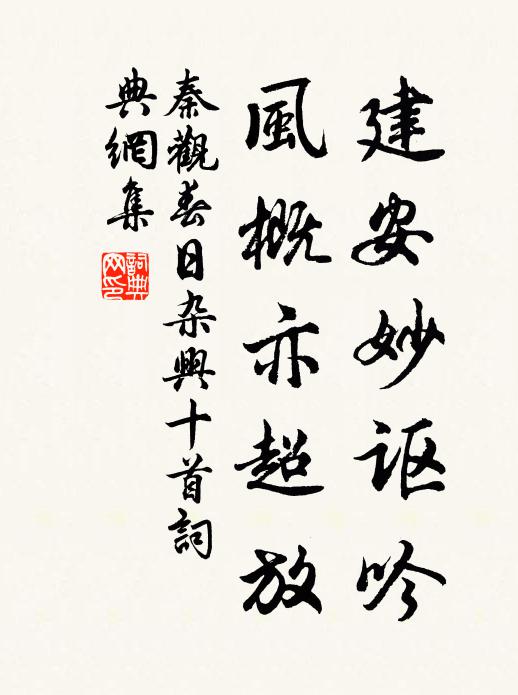 建安妙讴吟
風概亦超放
秦觀春日杂興十首詞
典網集
詞典網印